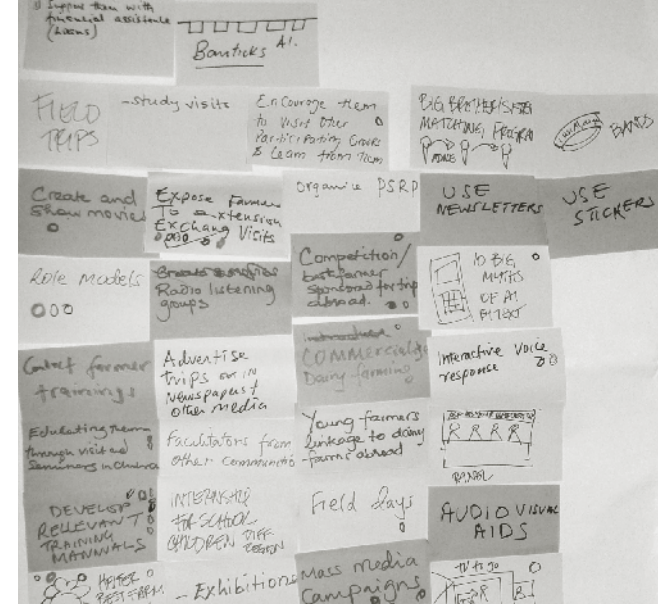 Support them with
financial assistance
(Loans)
Bansticks AI.
FIELD
TRIPS
-study visits
Encourage them
to visit other
Participating Groups
& learn from them
BIG BROTHER/SISTER
MATCHING PROGRAM
BANDS
Create and
Show movies
Expose Farmers
To extension
Exchange Visits
Organise PSRP
USE
NEWSLETTERS
USE
STICKERS
Role Models
Radio listening
groups
Competition/
best farmer
sponsored for trip
abroad.
10 BIG
MYTHS
OF AI
FLIPTEXT
Contact farmer
trainings
Advertise
trips in
Newspapers &
other media
Commercialize
Dairy farming
Interactive voice
response
Educating them
through visits and
Seminars in
Facilitators from
other communities
Young farmers
linkage to dairy
farms abroad
DEVELOP
RELLEVANT
TRAINING
MANNUALS
INTERNSHIP
FOR SCHOOL
CHILDREN DIFF
REGION
Field days
AUDIO VISUAL
AIDS
HEIFER
BEST FARM.
- Exhibitions
Mass media
Campaigns
TV to go